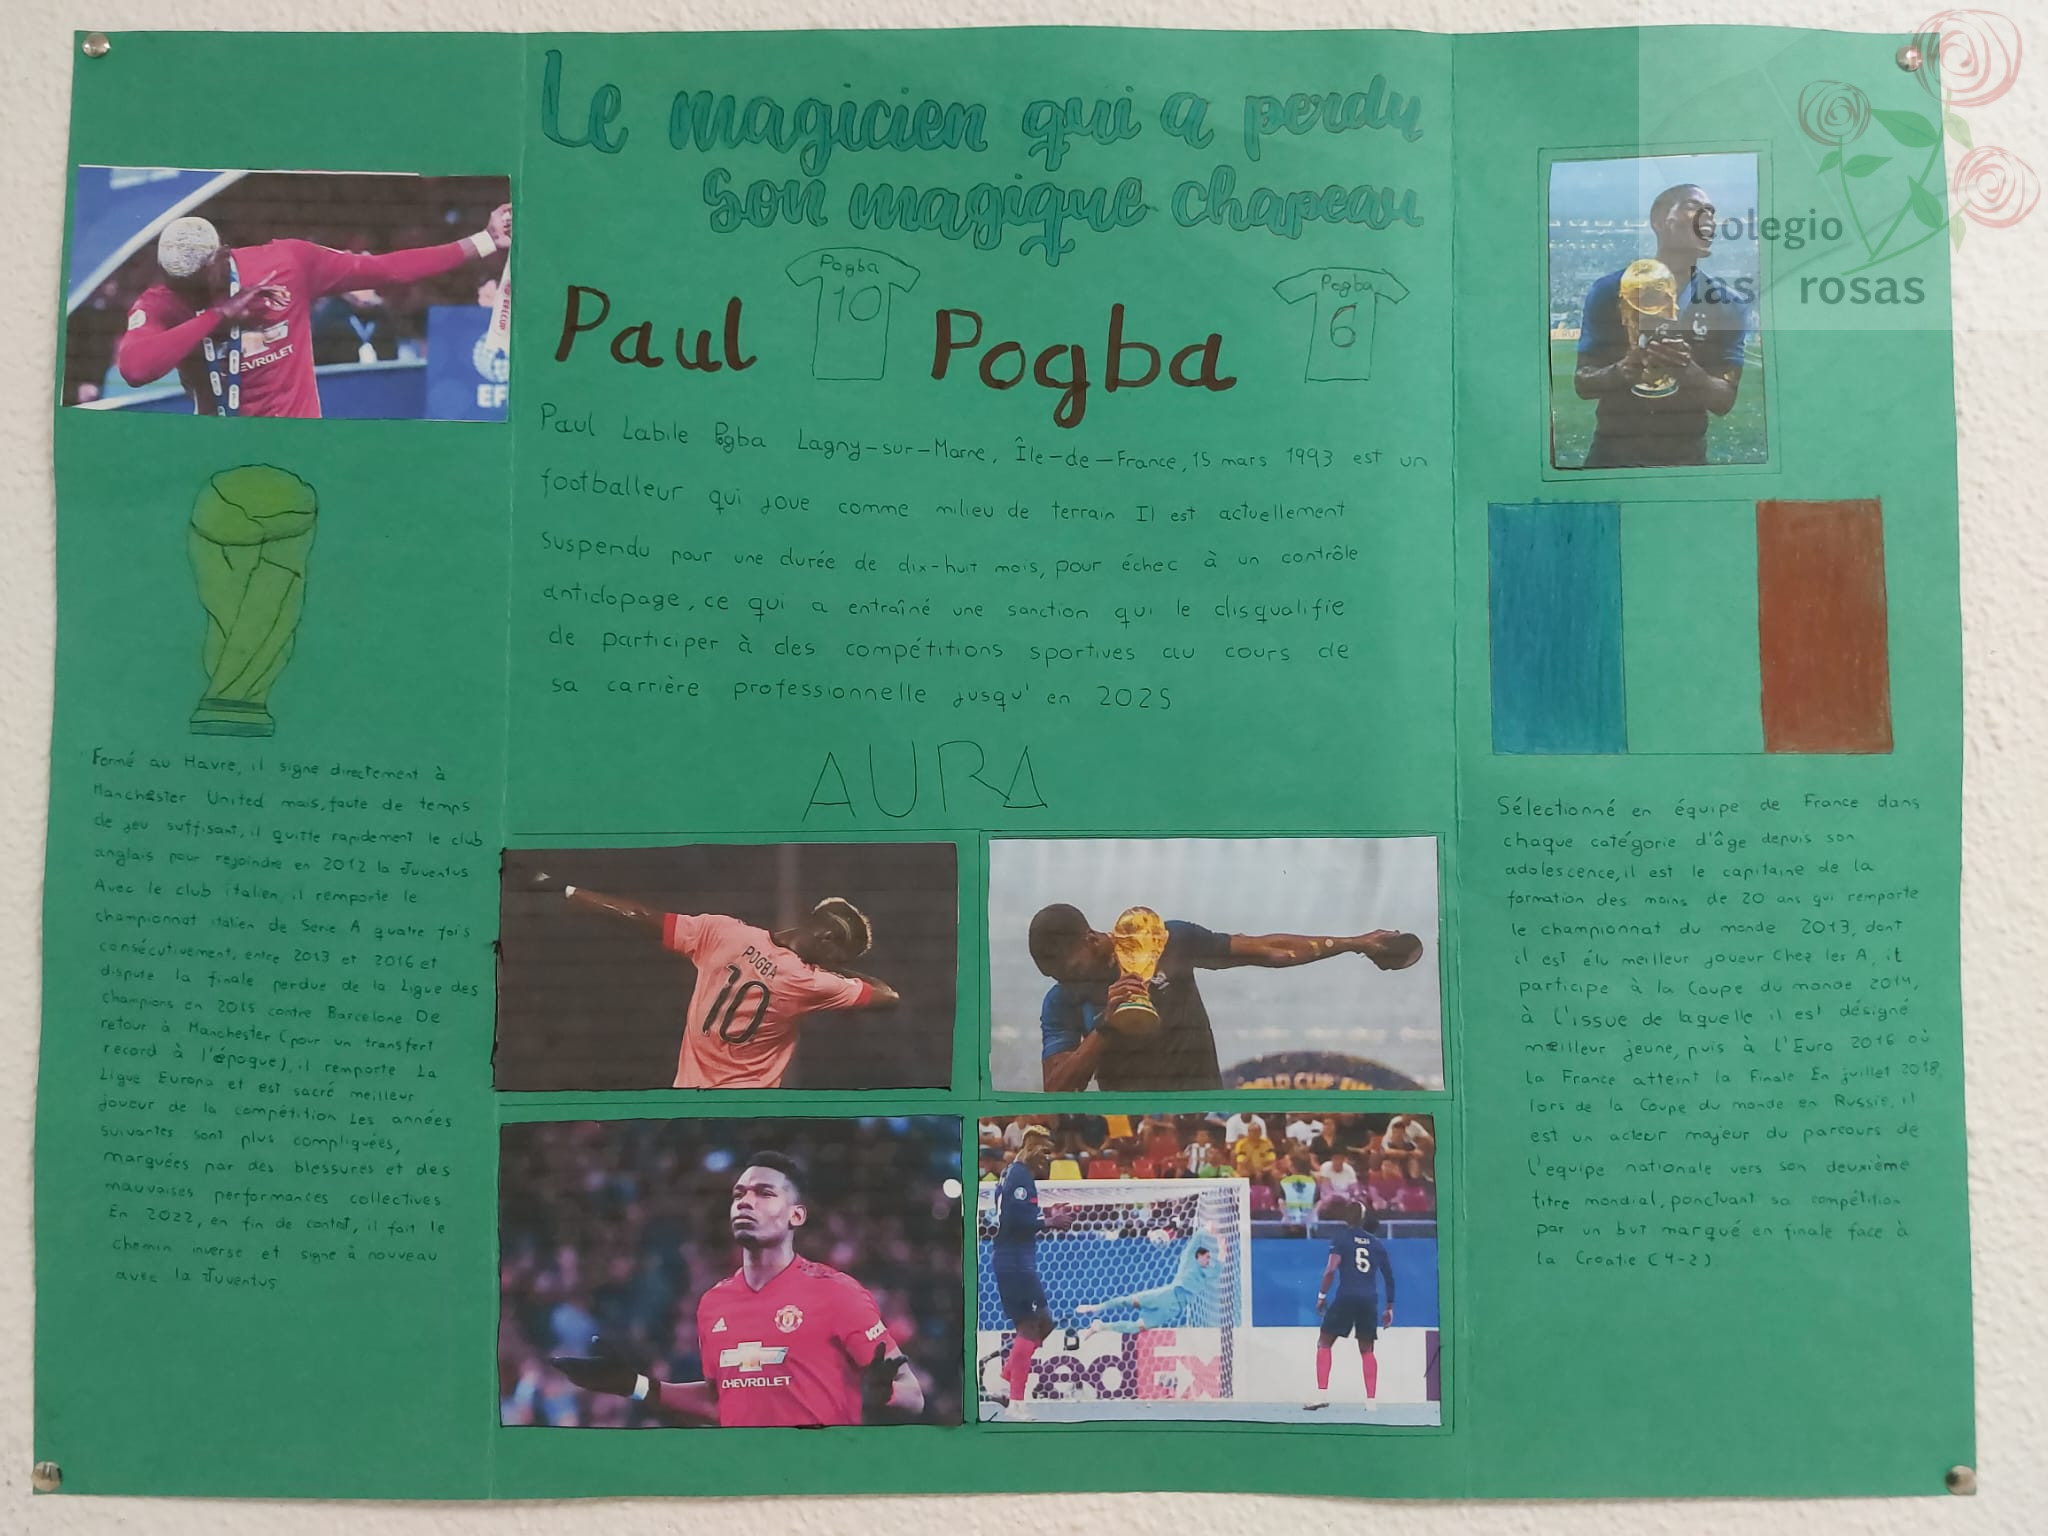 Le magicien qui a perdu
son magique chapeau
Paul Pogba
Pogba
10
Pogba
6
Paul Labile Pogba Lagny-sur-Marne, Île-de-France, 15 mars 1993 est un
footballeur qui joue comme milieu de terrain Il est actuellement
suspendu pour une durée de dix-huit mois, pour échec à un contrôle
antidopage, ce qui a entraîné une sanction qui le disqualifie
de participer à des compétitions sportives au cours de
sa carrière professionnelle jusqu'en 2025
AURA
EVROLET
EF
Formé au Havre, il signe directement à
Manchester United mais, faute de temps
de jeu suffisant, il quitte rapidement le club
anglais pour rejoindre en 2012 la Juventus
Avec le club italien, il remporte le
championnat italien de Serie A quatre fois
consécutivement, entre 2013 et 2016 et
dispute la finale perdue de la Ligue des
champions en 2015 contre Barcelone De
retour à Manchester (pour un transfert
record à l'époque), il remporte La
Ligue Europa et est sacré meilleur
joueur de la compétition Les années
suivantes sont plus compliquées,
marquées par des blessures et des
mauvaises performances collectives
En 2022, en fin de contat, il fait le
chemin inverse et signe à nouveau
avec la Juventus
POGBA
10
CHEVROLET
6
FedEx
Colegio
las rosas
Sélectionné en équipe de France dans
chaque catégorie d'âge depuis son
adolescence, il est le capitaine de la
formation des moins de 20 ans qui remporte
le championnat du monde 2013, dont
il est élu meilleur joueur Chez les A, it
participe à la Coupe du monde 2014,
à l'issue de laquelle il est désigné
meilleur jeune, puis à l'Euro 2016 où
la France atteint la finale En juillet 2018,
lors de la Coupe du monde en Russie, il
est un acteur majeur du parcours de
l'equipe nationale vers son deuxième
titre mondial, ponctuant sa compétition
par un but marqué en finale face à
la Croatie (4-2)